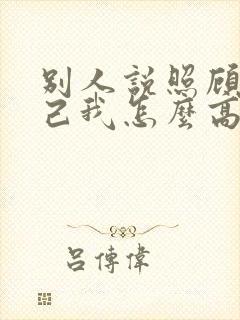 別人説照顧
己我怎麼高
呂傳偉